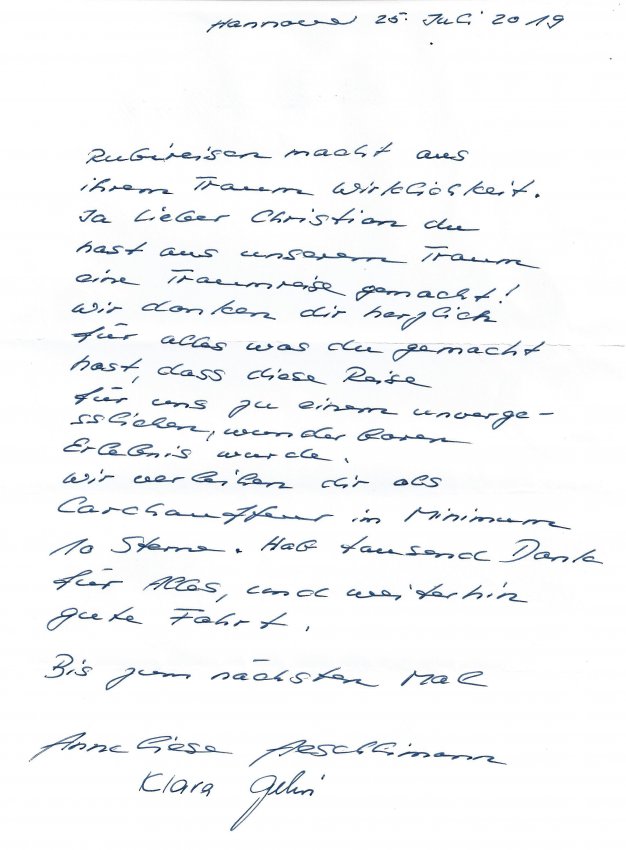 Hannover 25. Juli 2019
Rubireisen macht aus
ihrem Traum Wirklichkeit.
Ja lieber Christian du
hast aus unserem Traum
eine Traumreise gemacht!
Wir danken dir herzlich
für alles was du gemacht
hast, dass diese Reise
für uns zu einem unverge-
sslichen, wunderbaren
Erlebnis wurde.
Wir verleihen dir als
Carchauffeur im Minimum
10 Sterne. Hab tausend Dank
für Alles, und weiterhin
gute Fahrt.
Bis zum nächsten Mal
Anneliese Aeschlimann
Klara